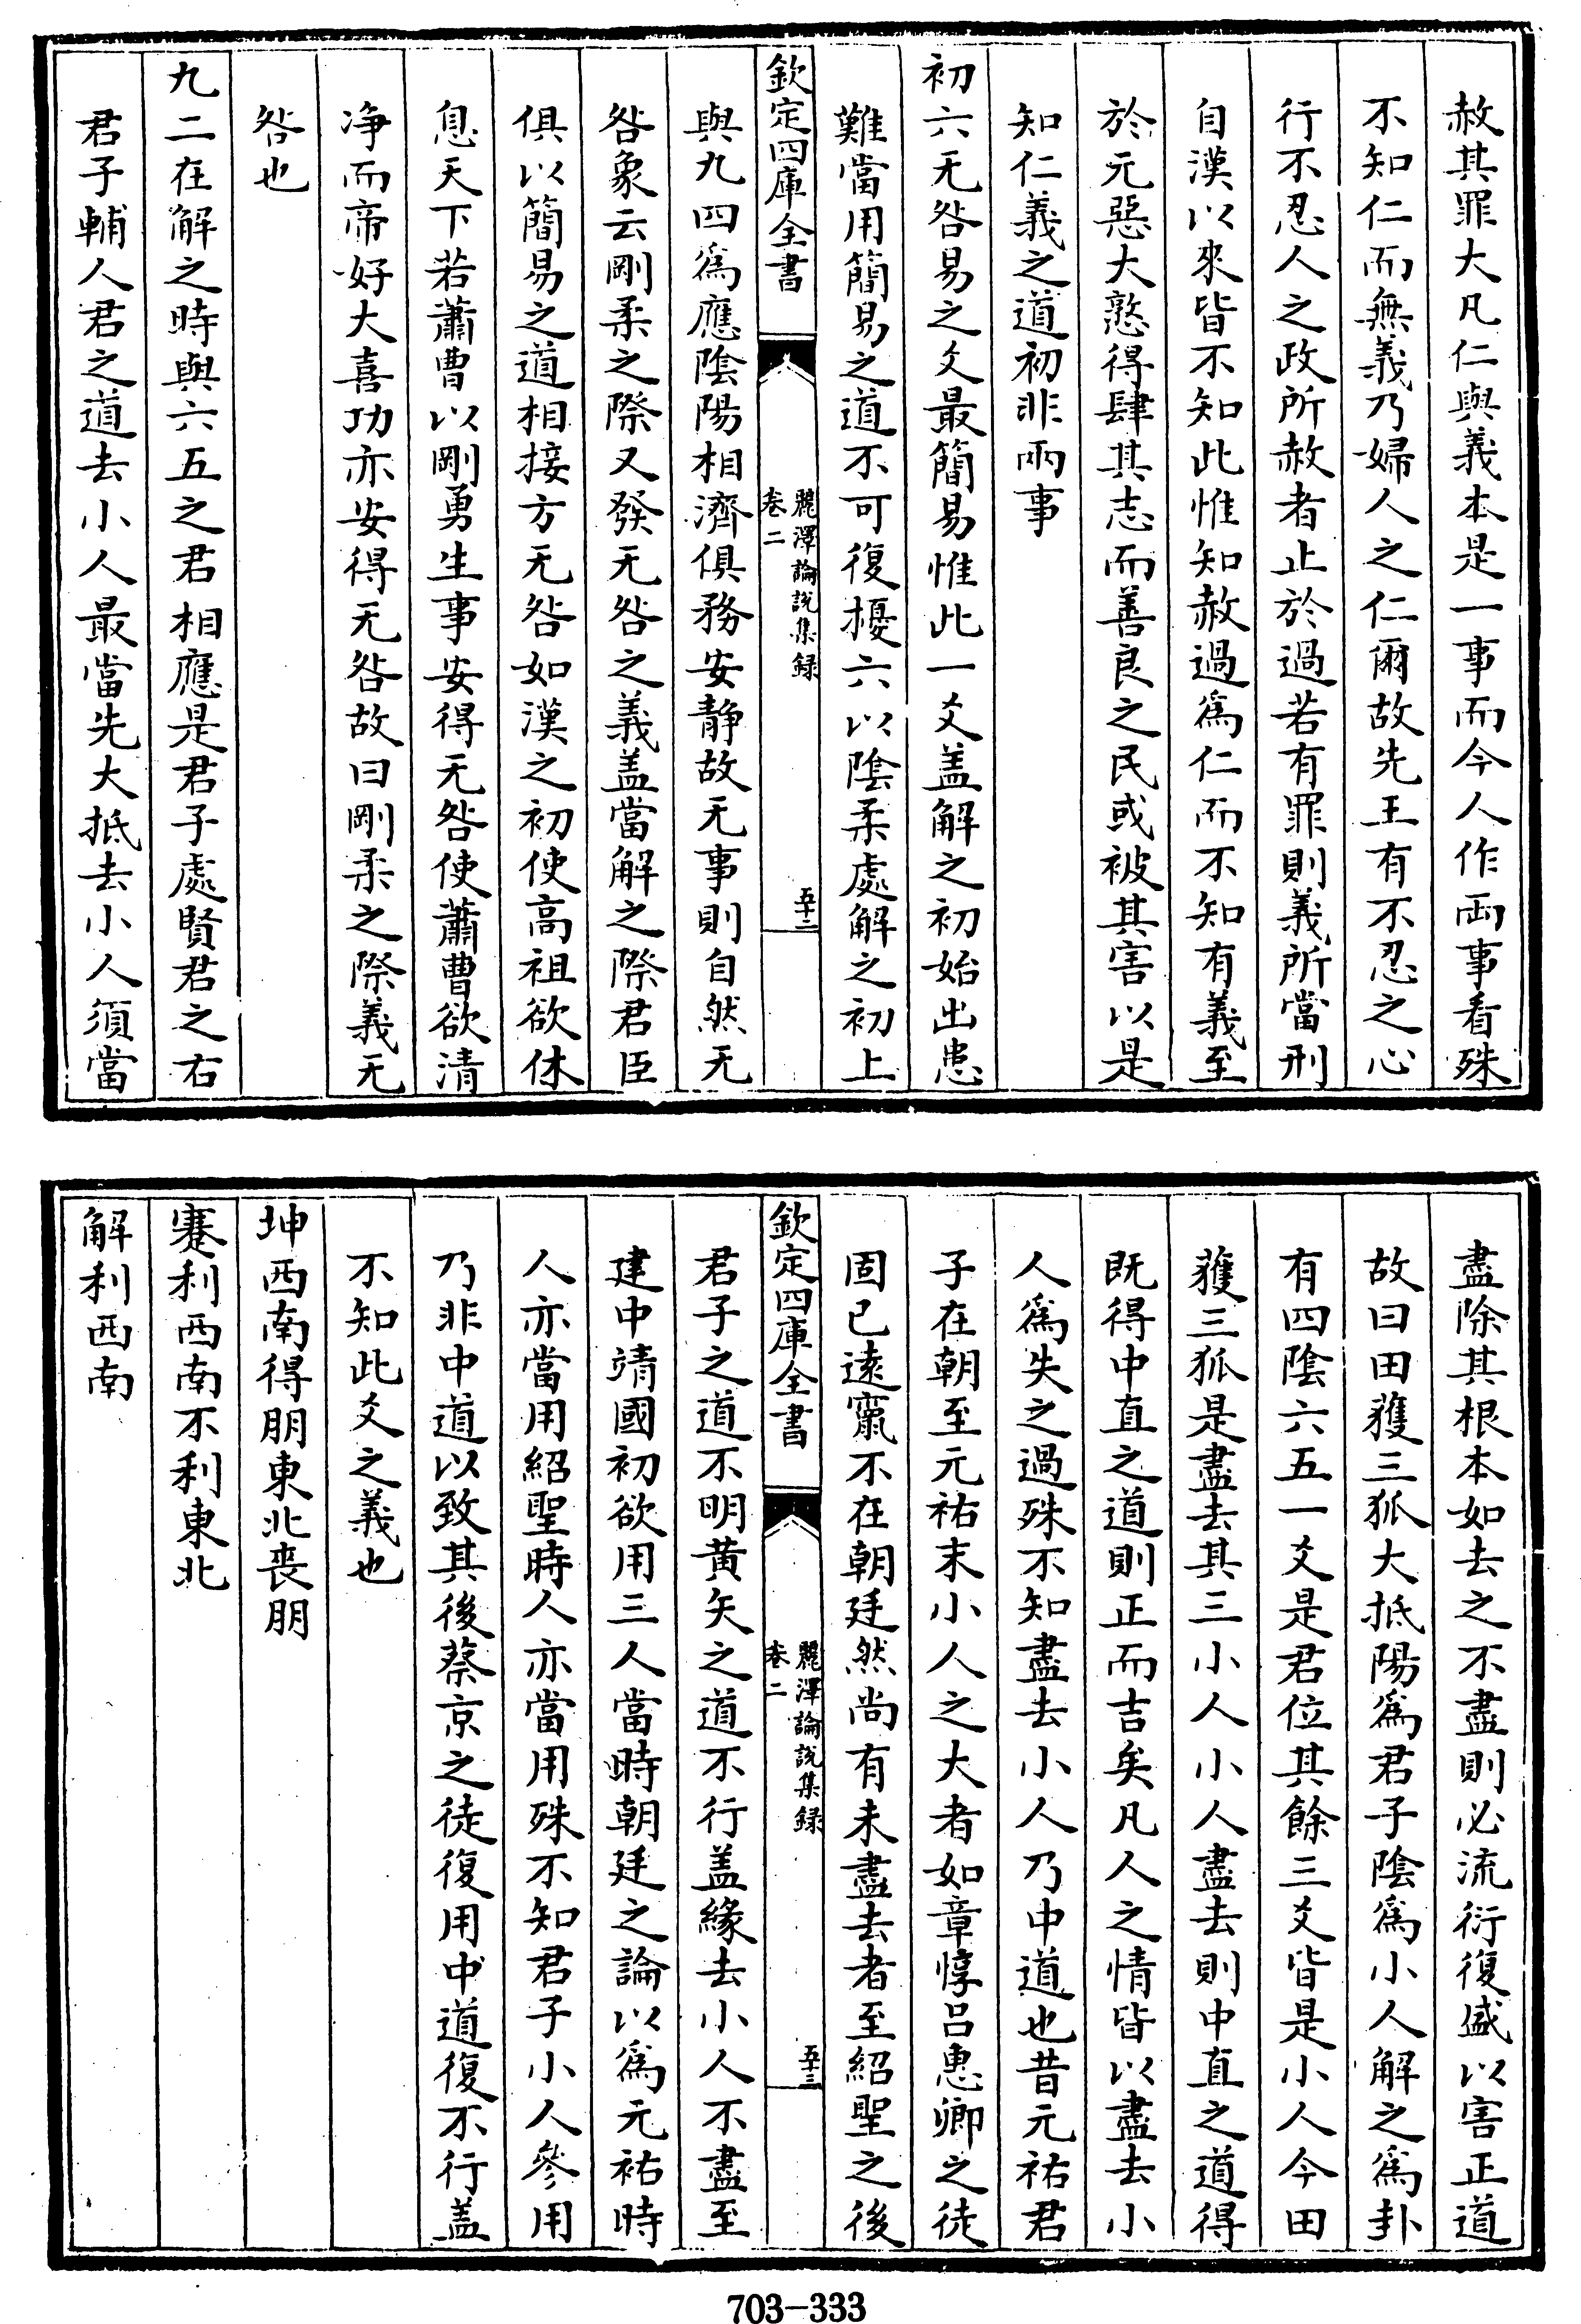 赦其罪大凡仁與義本是一事而今人作兩事看殊
不知仁而無義乃婦人之仁爾故先王有不忍之心
行不忍人之政所赦者止於過若有罪則義所當刑
自漢以來皆不知此惟知赦過為仁而不知有義至
於元惡大憝得肆其志而善良之民或被其害以是
知仁義之道初非兩事
初六无咎易之爻最簡易惟此一爻盖解之初始出患
難當用簡易之道不可復擾六以陰柔處解之初上
欽定四庫全書
麗澤論說集録
卷二
五十二
與九四為應陰陽相濟俱務安静故无事則自然无
咎象云剛柔之際又發无咎之義盖當解之際君臣
俱以簡易之道相接方无咎如漢之初使高祖欲休
息天下若蕭曹以剛勇生事安得无咎使蕭曹欲清
净而帝好大喜功亦安得无咎故曰剛柔之際義无
咎也
九二在解之時與六五之君相應是君子處賢君之右
君子輔人君之道去小人最當先大抵去小人須當
盡除其根本如去之不盡則必流衍復盛以害正道
故曰田獲三狐大抵陽為君子陰為小人解之為卦
有四陰六五一爻是君位其餘三爻皆是小人今田
獲三狐是盡去其三小人小人盡去則中直之道得
既得中直之道則正而吉矣凡人之情皆以盡去小
人為失之過殊不知盡去小人乃中道也昔元祐君
子在朝至元祐末小人之大者如章惇吕惠卿之徒
固已遠竄不在朝廷然尚有未盡去者至紹聖之後
欽定四庫全書
麗澤論說集録
卷二
五十三
君子之道不明黄矢之道不行盖緣去小人不盡至
建中靖國初欲用三人當時朝廷之論以為元祐時
人亦當用紹聖時人亦當用殊不知君子小人參用
乃非中道以致其後蔡京之徒復用中道復不行盖
不知此爻之義也
坤西南得朋東北喪朋
蹇利西南不利東北
解利西南
703-333